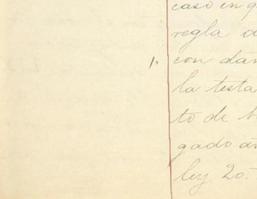 caso en q
regla d
1. con dan
la testa
to de b
gado á
ley 20.